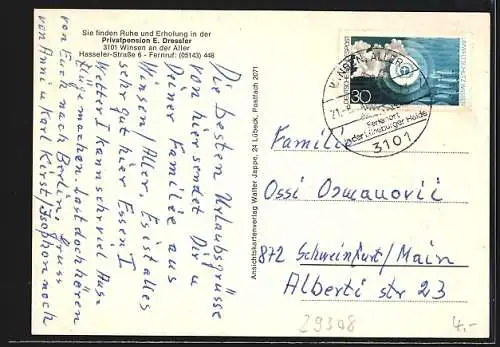 Sie finden Ruhe und Erholung in der
Privatpension E. Dressler
3101 Winsen an der Aller
Hasseler-Straße 6 - Fernruf: (05143) 448
Die besten Urlaubsgrüsse
von hier sendet Dir u
Deiner Familie aus
Winsen/Aller. Es ist alles
sehr gut hier Essen I
Wetter I kann sehr viel Aus
flüge machen. Last doch hören
von Euch nach Berlin. Gruss
von Anne u Karl Kirst/ noch
Ansichtskartenverlag Walter Jappe, 24 Lübeck, Postfach 2071
DEUTSCHE BUNDESPOST
30
UMWELTSCHUTZ WASSER
WINSEN, ALLER
21.
Ferienort
in der Lüneburger Heide
3101
Familie
Ossi Osmanovii
872 Schweinfurt/Main
Alberti str 23
29308
4,-